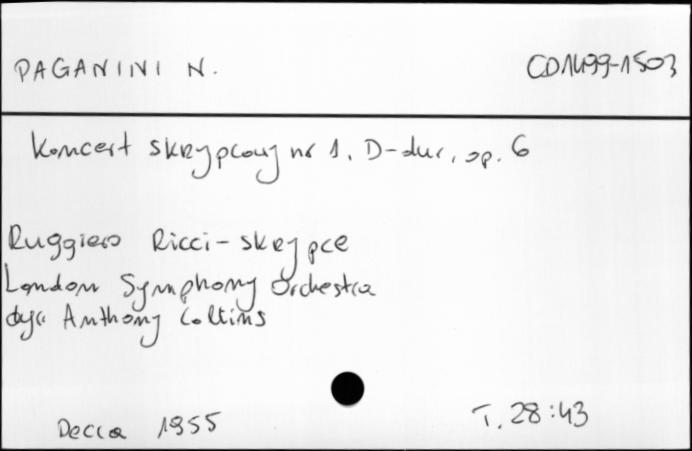 PAGANINI N.
CD1499-1503
Koncert skrzypcowy nr 1, D-dur, op. 6
Ruggiero Ricci - skrzypce
London Symphony Orchestra
dyr. Anthony Collins
Decca 1955
T. 28:43